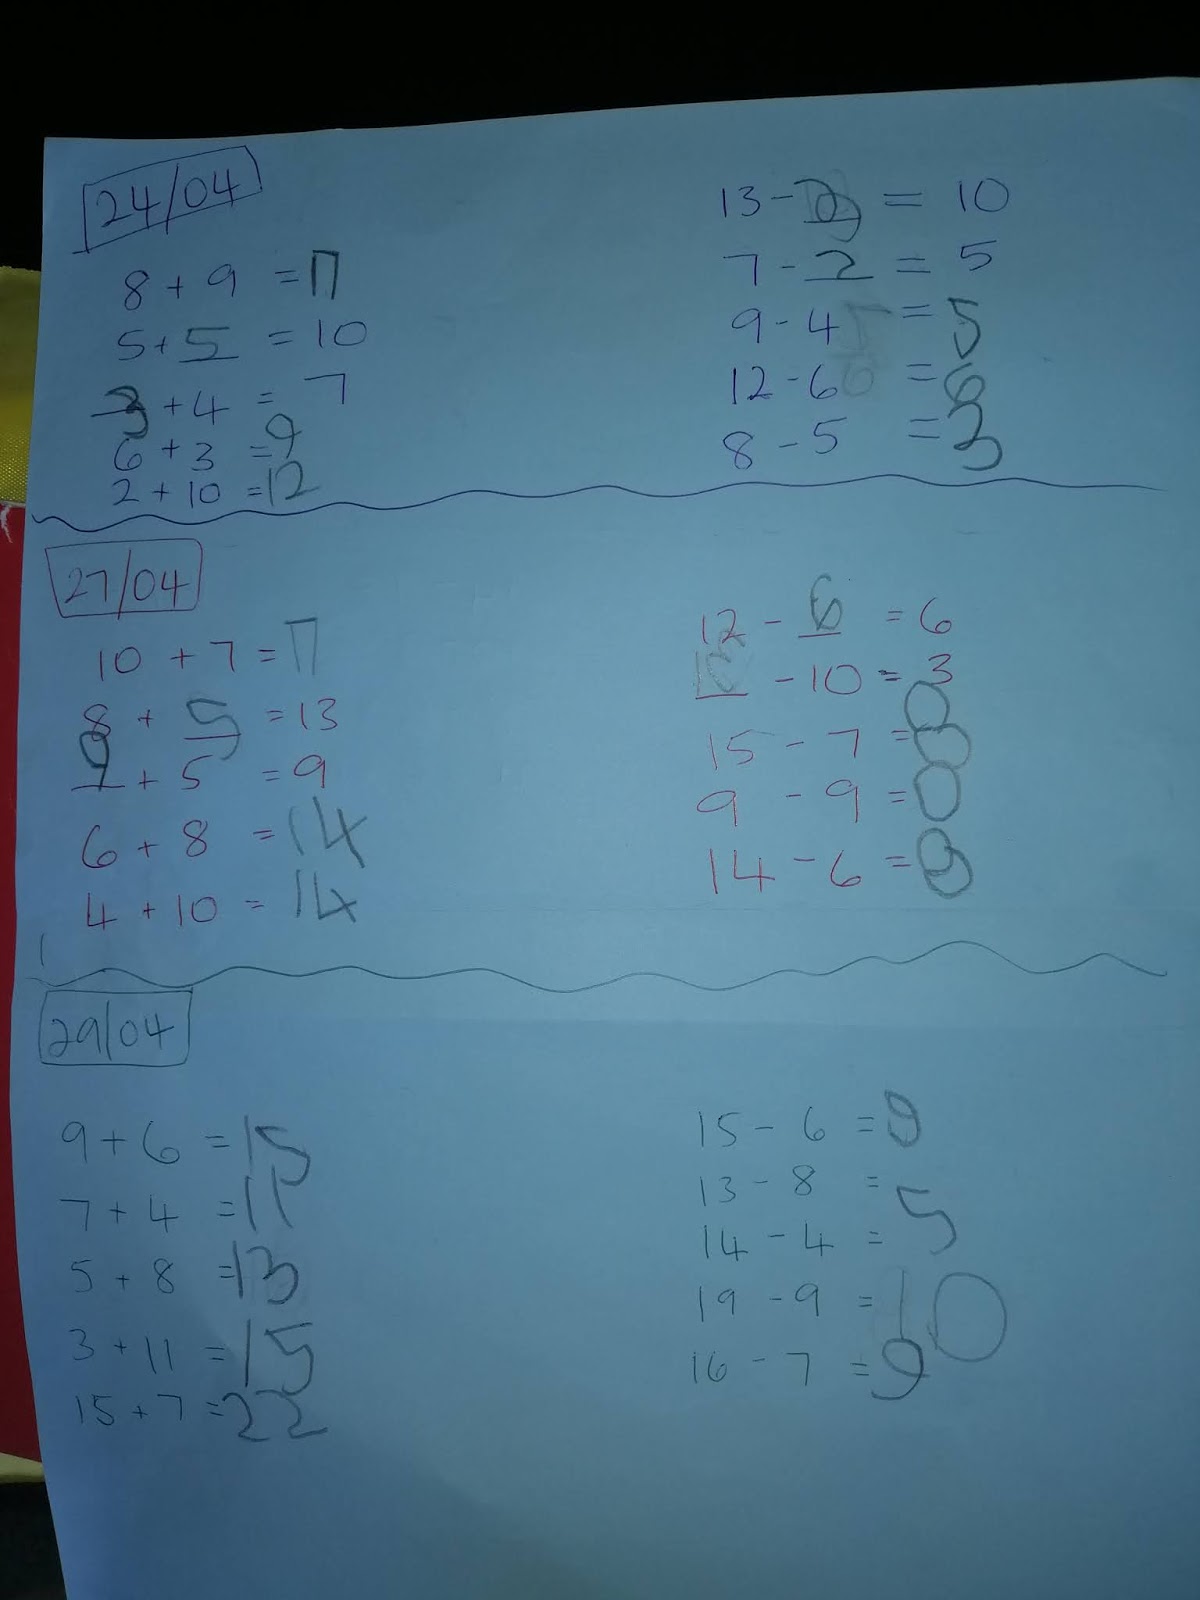 24/04
8 + 9 = 17
5 + 5 = 10
3 + 4 = 7
6 + 3 = 9
2 + 10 = 12
13 - 3 = 10
7 - 2 = 5
9 - 4 = 5
12 - 6 = 6
8 - 5 = 3
27/04
10 + 7 = 17
8 + 5 = 13
+ 5 = 9
6 + 8 = 14
4 + 10 = 14
12 - 6 = 6
13 - 10 = 3
15 - 7 = 8
9 - 9 = 0
14 - 6 =
29/04
9 + 6 = 15
7 + 4 = 11
5 + 8 = 13
3 + 11 = 15
15 + 7 = 22
15 - 6 = 9
13 - 8 = 5
14 - 4 =
19 - 9 = 10
16 - 7 = 9